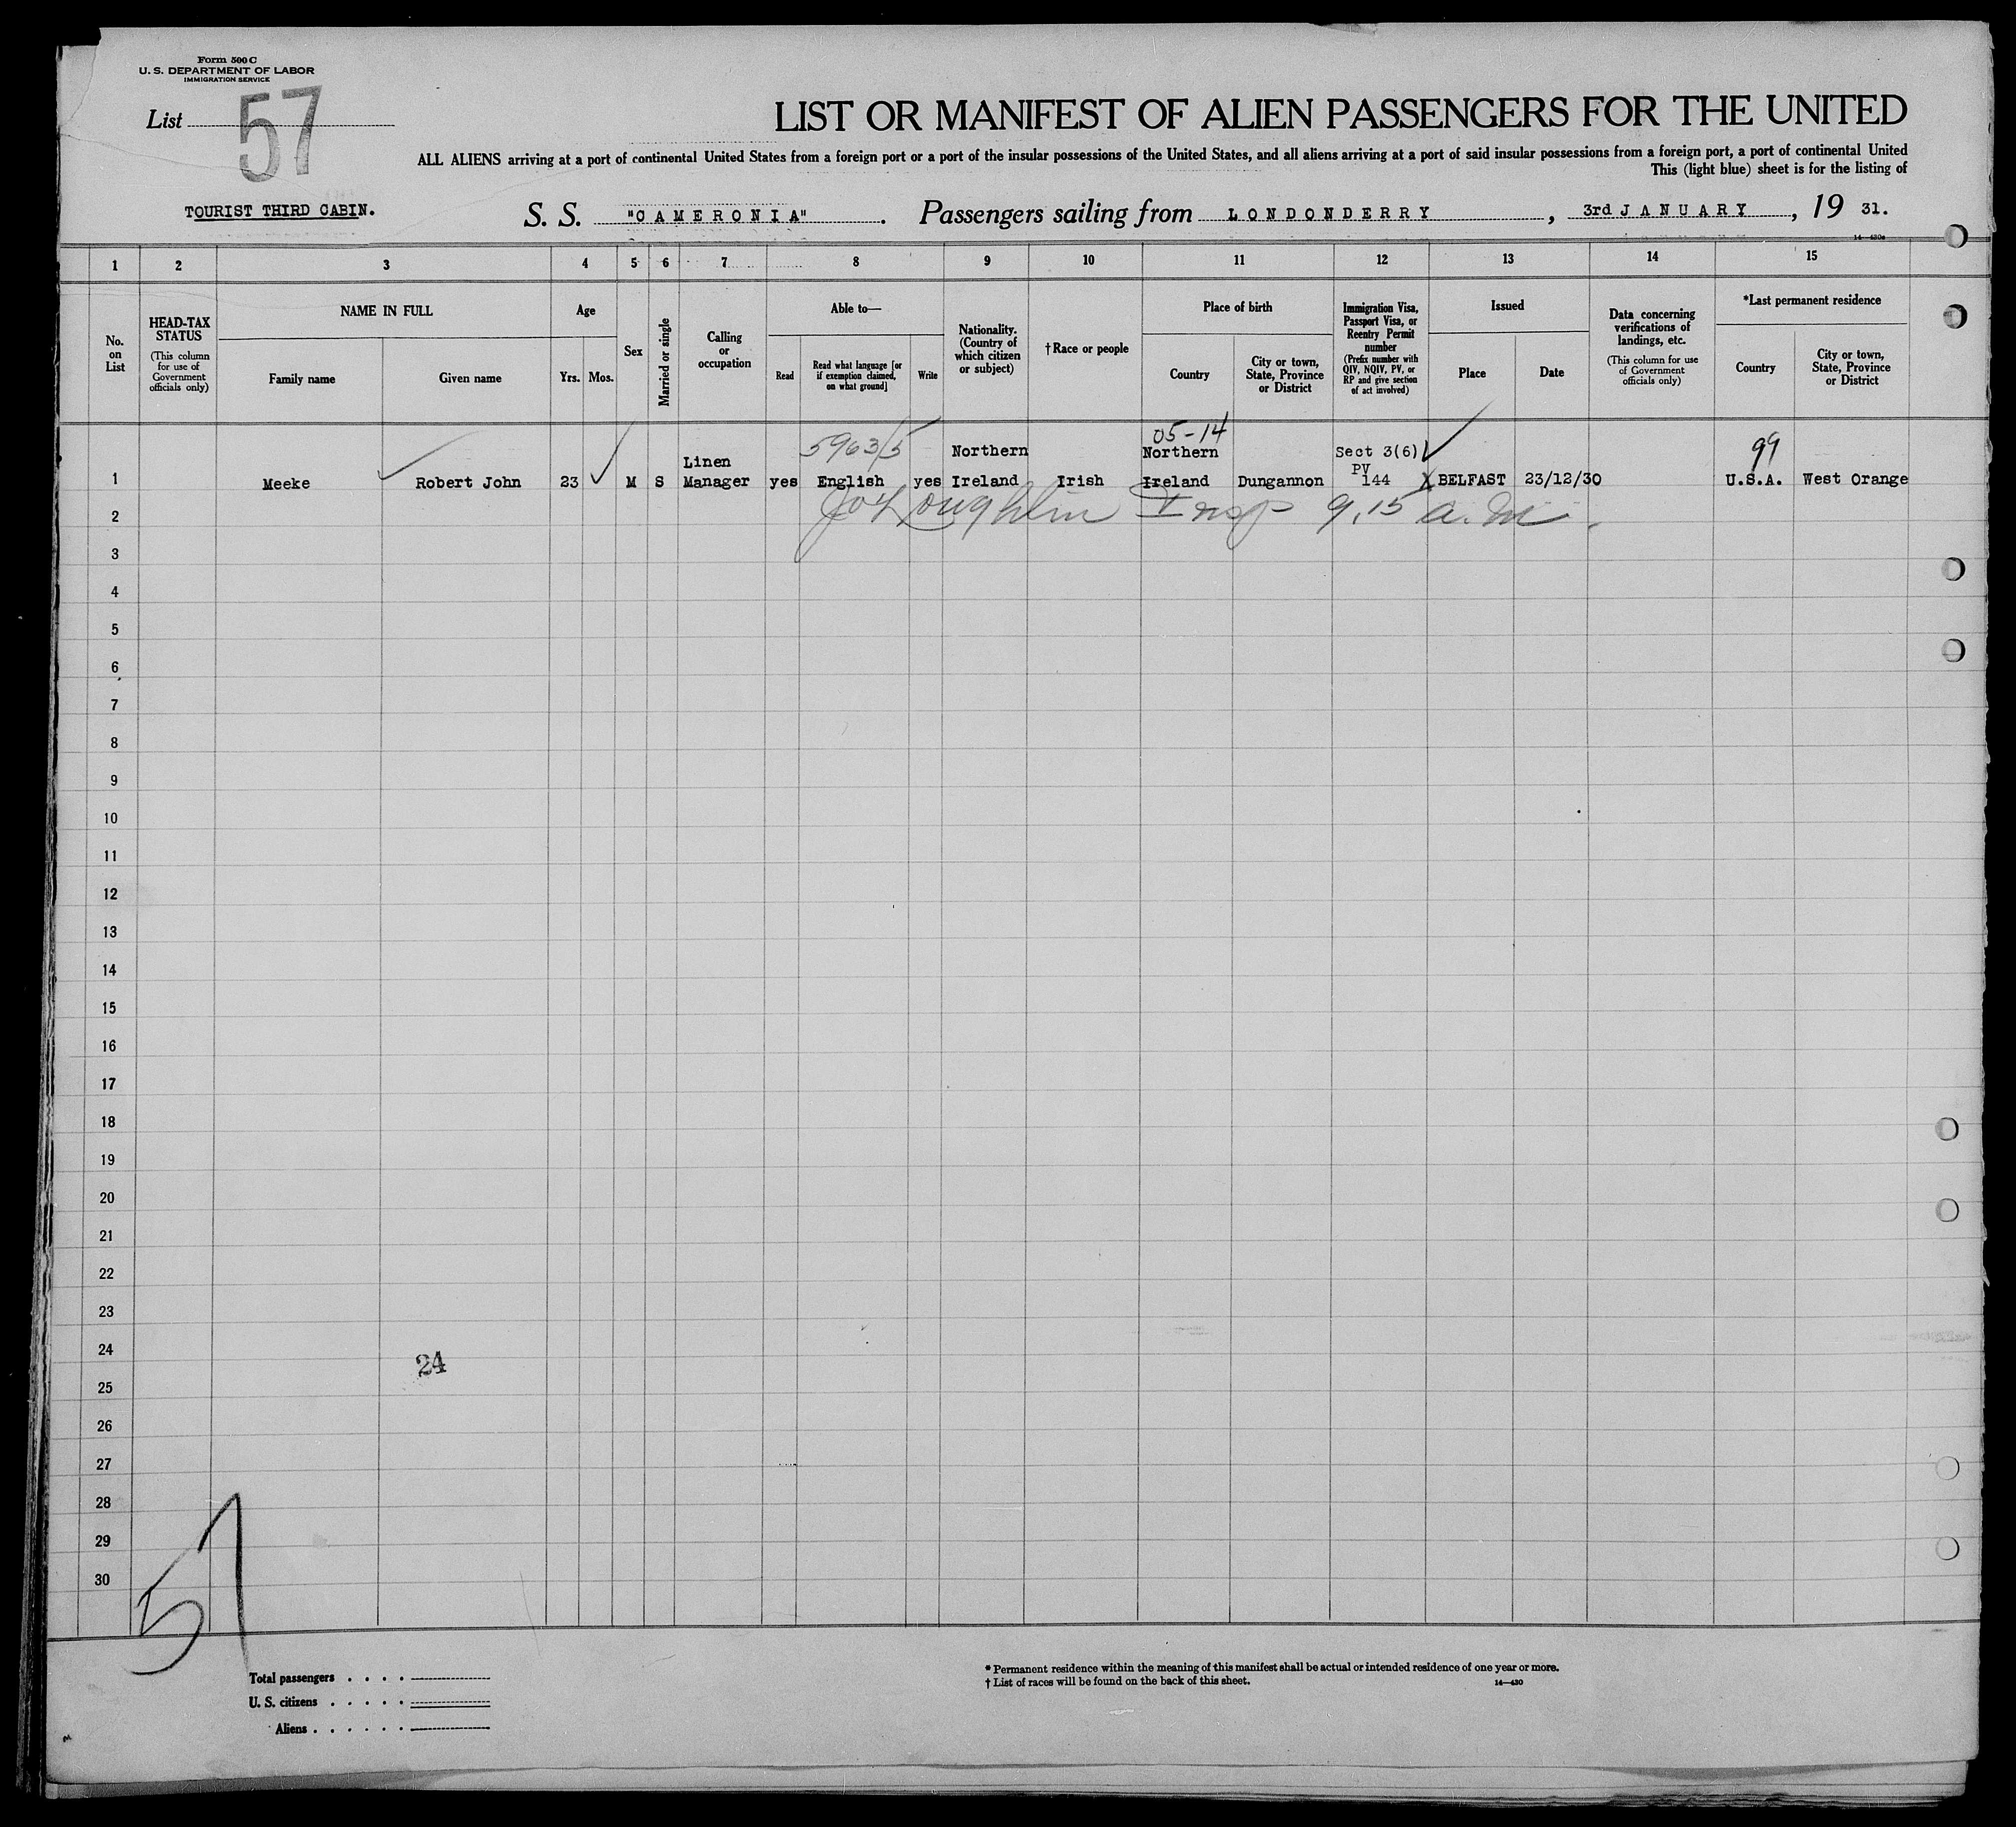 Form 500 C
U. S. DEPARTMENT OF LABOR
IMMIGRATION SERVICE
List 57
LIST OR MANIFEST OF ALIEN PASSENGERS FOR THE UNITED
ALL ALIENS arriving at a port of continental United States from a foreign port or a port of the insular possessions of the United States, and all aliens arriving at a port of said insular possessions from a foreign port, a port of continental United
This (light blue) sheet is for the listing of
TOURIST THIRD CABIN.
S. S. "CAMERONIA". Passengers sailing from LONDONDERRY, 3rd JANUARY, 19 31.
14—430a
1 2 3 4 5 6 7 8 9 10 11 12 13 14 15
No. on List
HEAD-TAX STATUS
(This column for use of Government officials only)
NAME IN FULL
Family name
Given name
Age
Yrs.
Mos.
Sex
Married or single
Calling or occupation
Able to—
Read
Read what language [or if exemption claimed, on what ground]
Write
Nationality. (Country of which citizen or subject)
†Race or people
Place of birth
Country
City or town, State, Province or District
Immigration Visa, Passport Visa, or Reentry Permit number
(Prefix number with QIV, NQIV, PV, or RP and give section of act involved)
Issued
Place
Date
Data concerning verifications of landings, etc.
(This column for use of Government officials only)
*Last permanent residence
Country
City or town, State, Province or District
5963/5
05-14
99
1 Meeke Robert John 23 M S Linen Manager yes English yes Northern Ireland Irish Northern Ireland Dungannon Sect 3(6) PV 144 X BELFAST 23/12/30 U.S.A. West Orange
2 Loughlin Insp 9.15 a.m.
3
4
5
6
7
8
9
10
11
12
13
14
15
16
17
18
19
20
21
22
23
24
24
25
26
27
28
29
30
57
Total passengers . . . .
U. S. citizens . . . . .
Aliens . . . . . .
* Permanent residence within the meaning of this manifest shall be actual or intended residence of one year or more.
† List of races will be found on the back of this sheet.
14—430